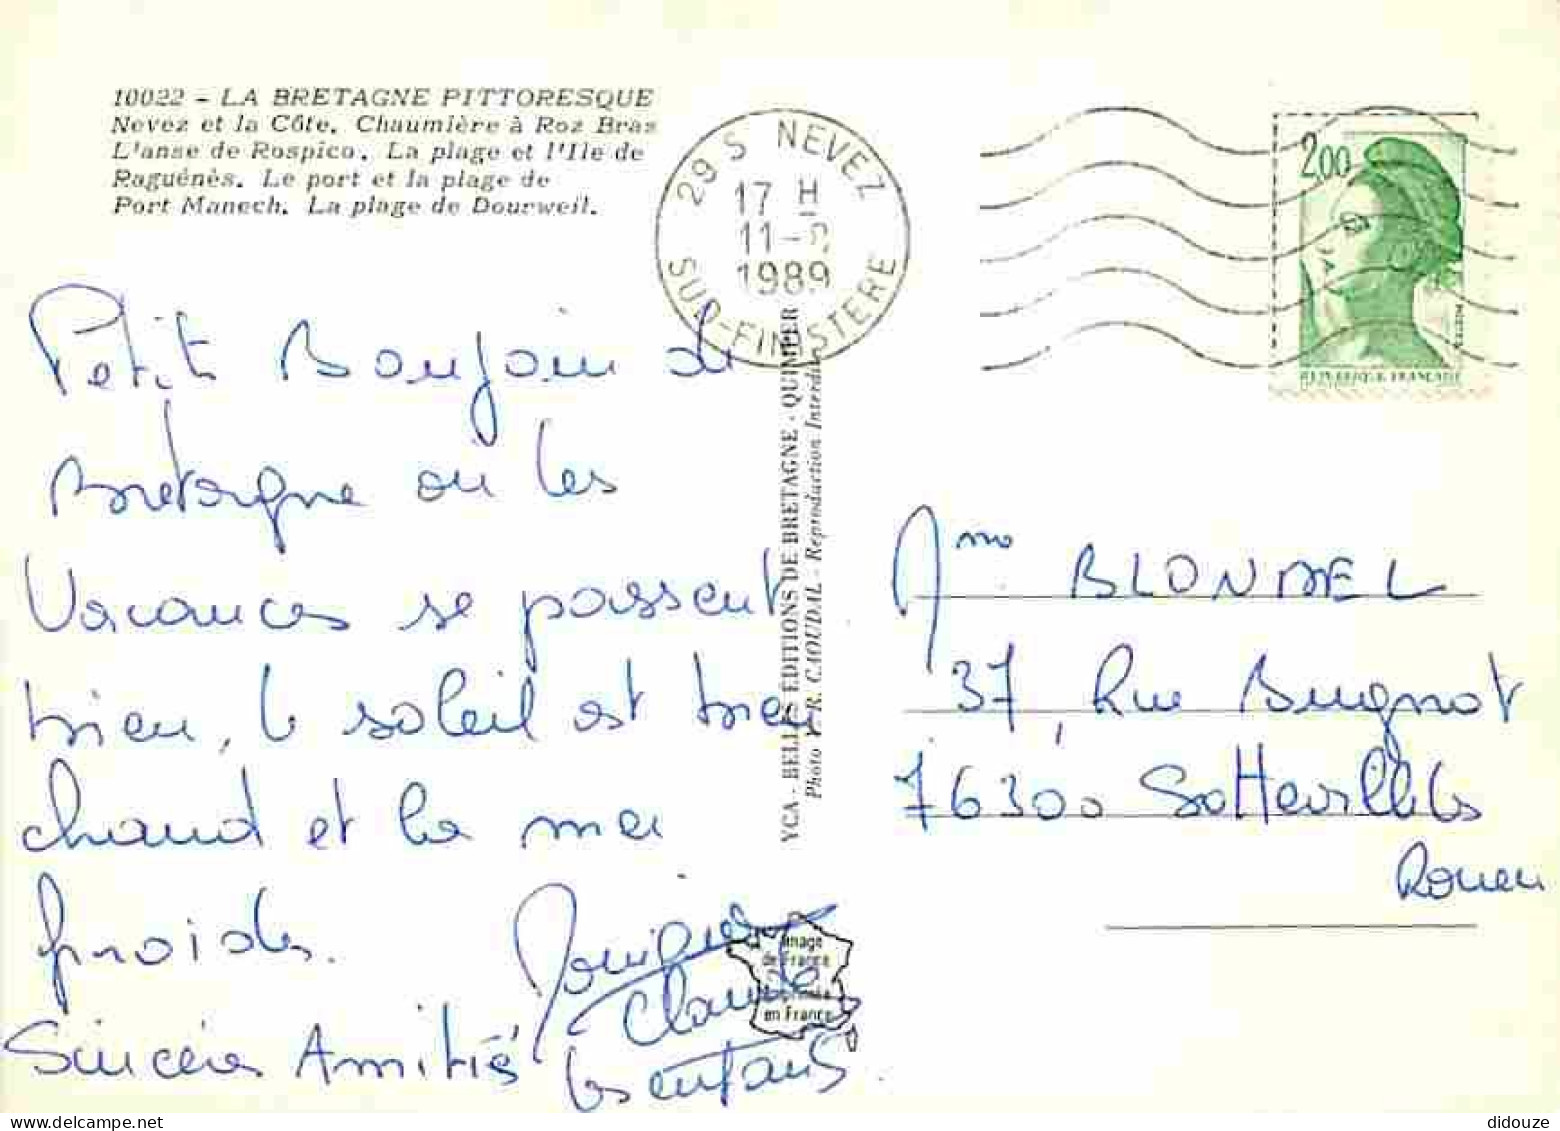 10022 - LA BRETAGNE PITTORESQUE
Nevez et la Côte. Chaumière à Roz Bras
L'anse de Rospico. La plage et l'Ile de
Raguénès. Le port et la plage de
Port Manech. La plage de Dourweil.
29 S NEVEZ
17 H
11-8
1989
SUD-FINISTERE
2,00
REPUBLIQUE FRANÇAISE
Petit Bonjour de
Bretagne où les
Vacances se passent
bien, le soleil est bien
chaud et la mer
froide.
Sincères Amitiés
Monique
Claude
les enfants.
YCA - BELLES ÉDITIONS DE BRETAGNE - QUIMPER
Photo Y. R. CAOUDAL - Reproduction Interdite
Mme BLONDEL
37, Rue Bugnot
76300 Sotteville les
Rouen
Image
de France
Imprimée
en France
delcampe.net
didouze